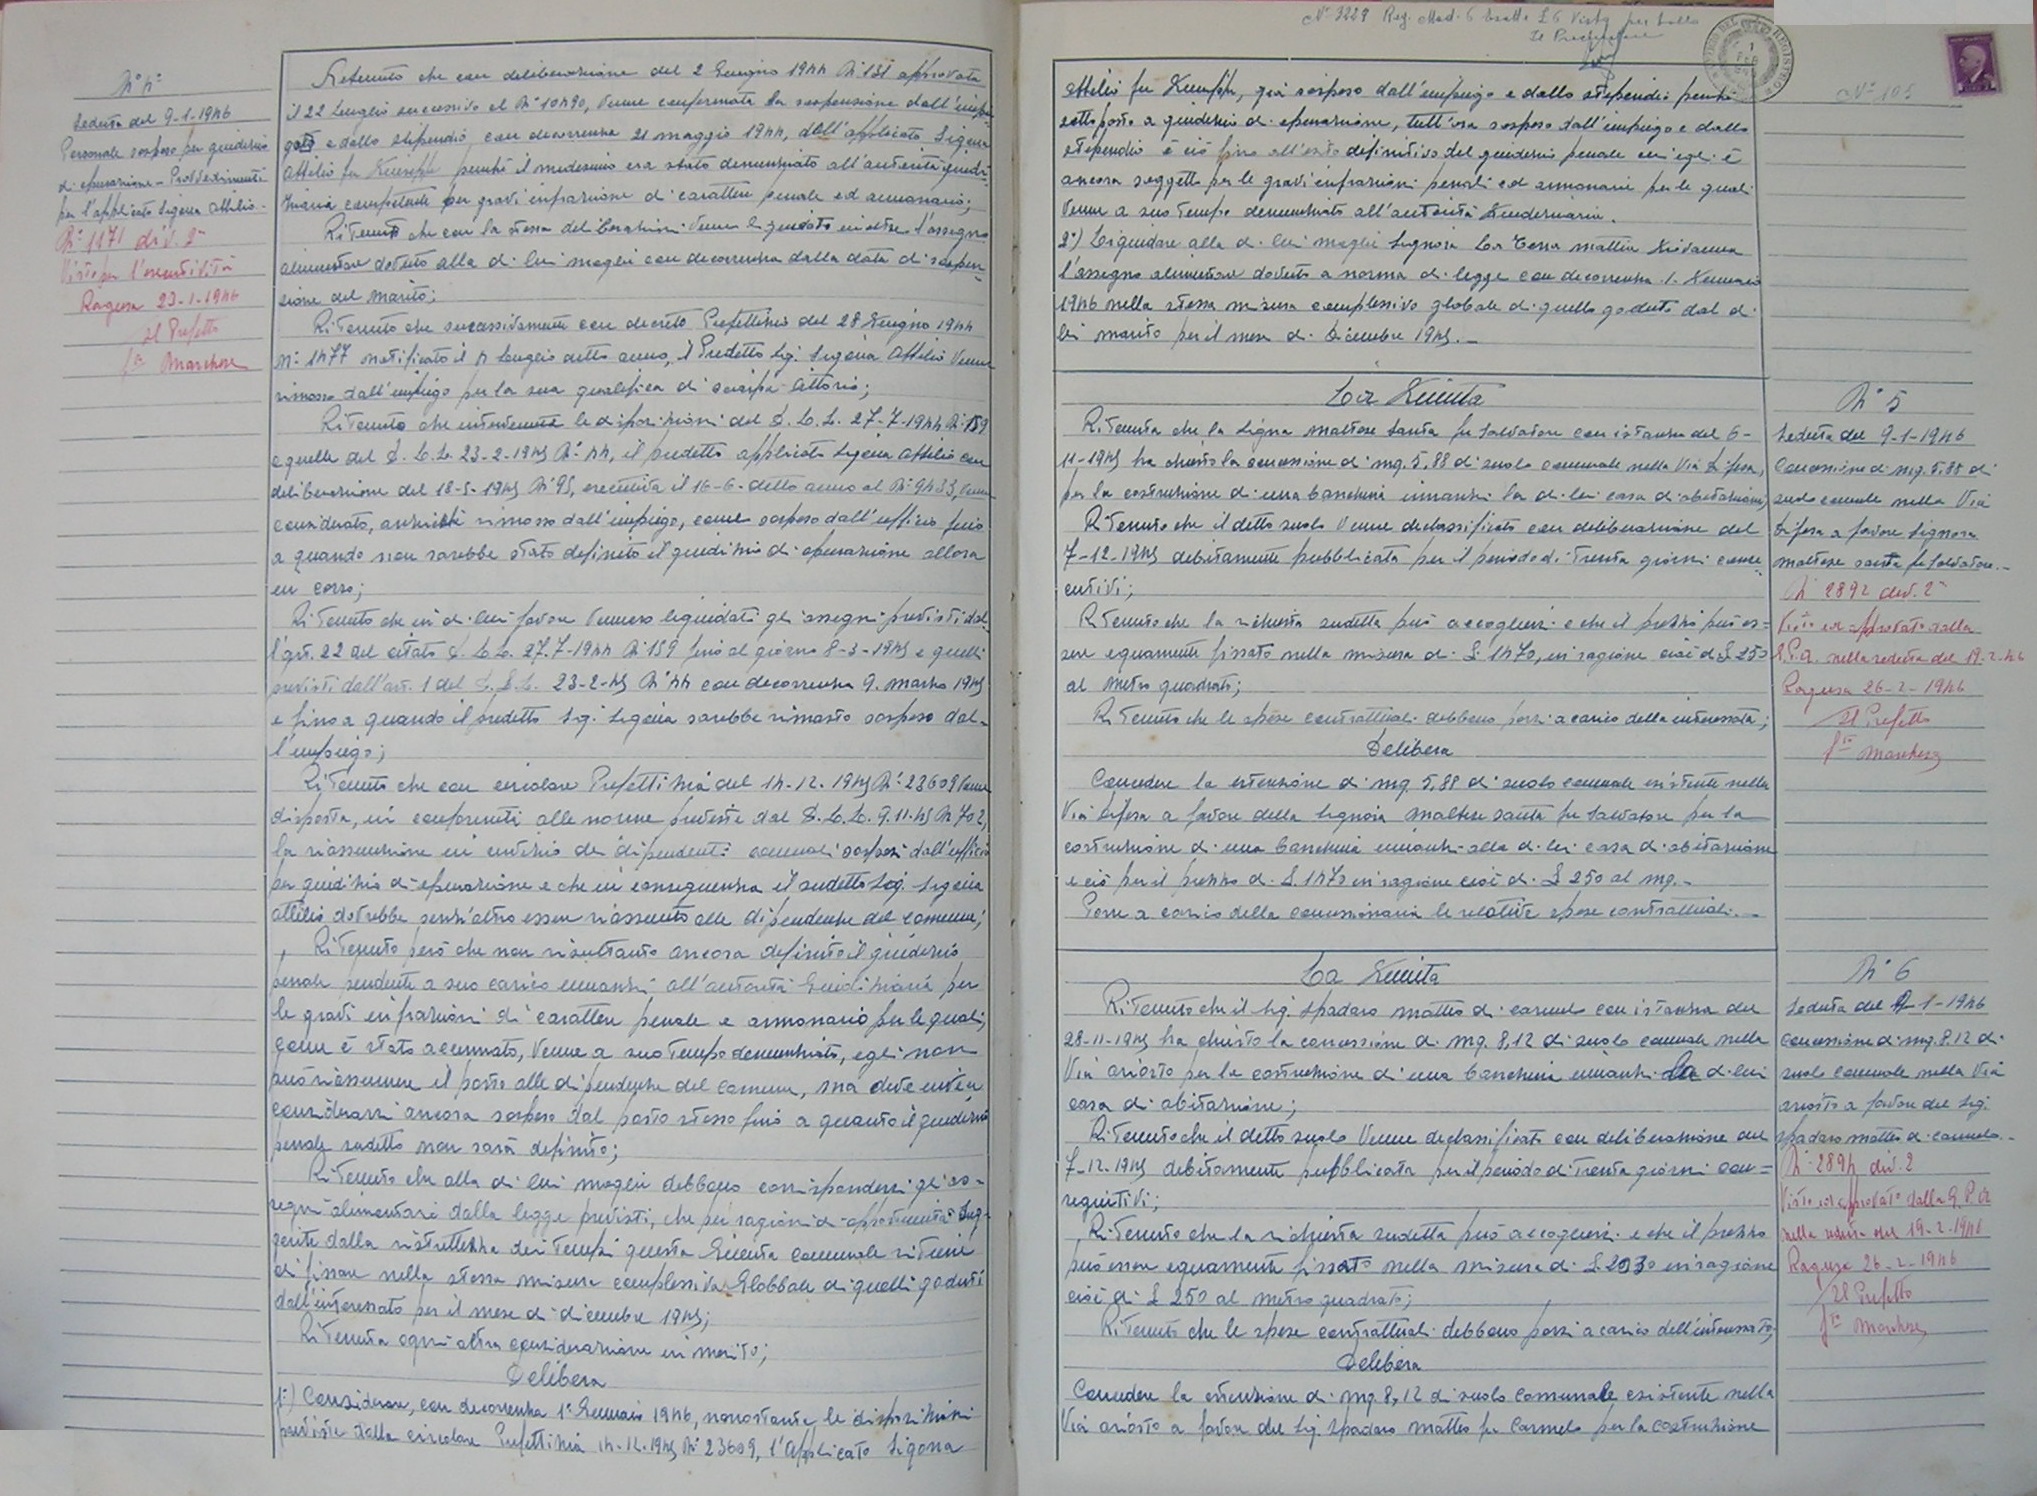 N° 4
Seduta del 9-1-1946
Personale sospeso per giudizio
di epurazione - Provvedimenti
per l'applicato Sigona Attilio.-
N° 1171 div. 2ª
Visto per l'esecutività
Ragusa 23-1-1946
Il Prefetto
Ritenuto che con deliberazione del 2 Giugno 1944 N° 131 approvata
il 22 Luglio successivo al N° 10490, venne confermata la sospensione dall'impie-
go e dallo stipendio, con decorrenza 21 maggio 1944, dell'applicato Sigona
Attilio fu Giuseppe perché il medesimo era stato denunziato all'autorità giudi-
ziaria competente per gravi infrazione di carattere penale ed annonario;
Ritenuto che con la stessa deliberazione venne liquidato inoltre l'assegno
alimentare dovuto alla di lui moglie con decorrenza dalla data di sospen-
sione del marito;
Ritenuto che successivamente con decreto Prefettizio del 28 Giugno 1944
N° 1477 notificato il 4 Luglio detto anno, il Predetto Sig. Sigona Attilio venne
rimosso dall'impiego per la sua qualifica di sciarpa littorio;
Ritenuto che intervenute le disposizioni del D.L.L. 27-7-1944 N° 159
e quelle del D.L.L. 23-2-1945 N° 44, il predetto applicato Sigona Attilio con
deliberazione del 18-5-1945 N° 95, esecutiva il 16-6- dello anno al N° 9433, venne
considerato, anziché rimosso dall'impiego, come sospeso dall'ufficio fino
a quando non sarebbe stato definito il giudizio di epurazione allora
in corso;
Ritenuto che in di lui favore vennero liquidati gli assegni previsti dal-
l'art. 22 del citato D.L.L. 27.7-1944 N° 159 fino al giorno 8-3-1945 e quelli
previsti dall'art. 1 del D.L.L. 23-2-45 N° 44 con decorrenza 9. marzo 1945
e fino a quando il predetto Sig. Sigona sarebbe rimasto sospeso dal-
l'impiego;
Ritenuto che con circolare Prefettizia del 14-12-1945 N° 23609 venne
disposta, in conformità alle norme previste dal D.L.L. 9.11-45 N 702,
la riassunzione in servizio dei dipendenti comunali sospesi dall'ufficio
per giudizio di epurazione e che in conseguenza il sudetto Sig. Sigona
Attilio dovrebbe senz'altro esser riassunto alle dipendenze del comune;
Ritenuto però che non risultando ancora definito il giudizio
penale pendente a suo carico innanzi all'autorità Giudiziaria per
le gravi infrazioni di carattere penale e annonario per le quali,
come è stato accennato, venne a suo tempo denunziato, egli non
può riassumere il posto alle dipendenze del comune, ma deve invece
considerarsi ancora sospeso dal posto stesso fino a quanto il giudizio
penale sudetto non sarà definito;
Ritenuto che alla di lui moglie debbono corrispondersi gli as-
segni alimentari dalla legge previsti, che per ragioni di opportunità sug-
gerite dalla ristrettezza dei tempi questa Giunta comunale ritiene
di fissare nella stessa misura complessiva Globbale di quelli goduti
dall'interessato per il mese di dicembre 1945;
Ritenuta ogni altra considerazione in merito;
Delibera
1°) Considerare, con decorrenza 1° Gennaio 1946, nonostante le disposizioni
previste dalla circolare Prefettizia 14-12-1945 N° 23609, l'Applicato Sigona
N° 3229 Reg. Mod. 6 Esatte £ 6 Visto per bollo
Il Procuratore
N° 105
Attilio fu Giuseppe, già sospeso dall'impiego e dallo stipendio perché
sottoposto a giudizio di epurazione, tutt'ora sospeso dall'impiego e dallo
stipendio e ciò fino all'esito definitivo del giudizio penale cui egli è
ancora soggetto per le gravi infrazioni penali ed annonarie per le quali
venne a suo tempo denunziato all'autorità Giudiziaria.
2°) Liquidare alla di lui moglie Signora La Terra Mattia Giovanna
l'assegno alimentare dovuto a norma di legge con decorrenza 1. Gennaio
1946 nella stessa misura complessiva globale di quello goduto dal di
lei marito per il mese di Dicembre 1945.-
La Giunta
Ritenuta che la Signa Maltese Santa fu Salvatore con istanza del 6-
11-1945 ha chiesto la concessione di mq. 5,88 di suolo comunale nella Via Difesa,
per la costruzione di una banchina innanzi la di lei casa di abitazione;
Ritenuto che il detto suolo venne declassificato con deliberazione del
7-12-1945 debitamente pubblicata per il periodo di trenta giorni conse-
cutivi;
Ritenuto che la richiesta sudetta può accogliersi e che il prezzo può es=
sere equamente fissato nella misura di £. 1470, in ragione cioè di £ 250
al metro quadrato;
Ritenuto che le spese contrattuali debbono porsi a carico della interessata;
Delibera
Concedere la estensione di mq 5,88 di suolo comunale esistente nella
Via Difesa a favore della Signora Maltese Santa fu Salvatore per la
costruzione di una banchina innanzi alla di lei casa di abitazione
e ciò per il prezzo di £. 1470 in ragione cioè di £ 250 al mq.-
Porre a carico della concessionaria le relative spese contrattuali.-
N° 5
Seduta del 9-1-1946
Concessione di mq. 5,88 di
suolo comunale nella Via
Difesa a favore Signora
Maltese Santa fu Salvatore.-
N 2892 div. 2ª
Visto ed approvato dalla
G.P.A. nella seduta del 19-2-46
Ragusa 26-2-1946
Il Prefetto
La Giunta
Ritenuto che il Sig. Spadaro Matteo di Carmelo con istanza del
28-11-1945 ha chiesto la concessione di mq. 8,12 di suolo comunale nella
Via Ariosto per la costruzione di una banchina innanzi la di lui
casa di abitazione;
Ritenuto che il detto suolo venne declassificato con deliberazione del
7-12-1945 debitamente pubblicata per il periodo di trenta giorni con=
seguitivi;
Ritenuto che la richiesta sudetta può accogliersi e che il prezzo
può esser equamente fissato nella misura di £ 2030 in ragione
cioè di £ 250 al metro quadrato;
Ritenuto che le spese contrattuali debbono porsi a carico dell'interessato;
Delibera
Concedere la estensione di mq. 8,12 di suolo comunale esistente nella
Via Ariosto a favore del Sig. Spadaro Matteo fu Carmelo per la costruzione
N° 6
Seduta del 9-1-1946
Concessione di mq. 8,12 di
suolo comunale nella Via
Ariosto a favore del Sig.
Spadaro Matteo di Carmelo.-
N° 2894 div. 2
Visto ed approvato dalla G.P.A
nella seduta del 19-2-1946
Ragusa 26-2-1946
Il Prefetto